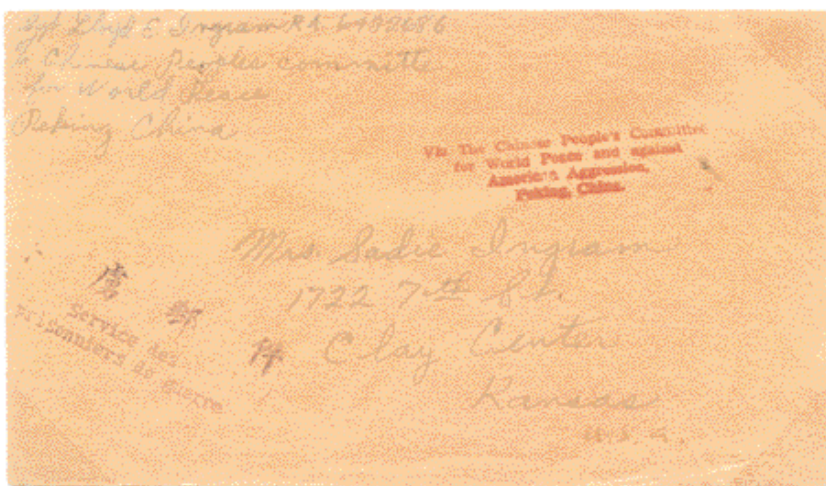 Sgt Lloyd E Ingram RA
% Chinese Peoples Committe
for World Peace
Peking China
Via The Chinese People's Committee
for World Peace and against
American Aggression,
Peking, China.
Mrs Sadie Ingram
1722 7th St.
Clay Center
Kansas
U.S.A.
郵
件
Service des
Prisonniers de Guerre